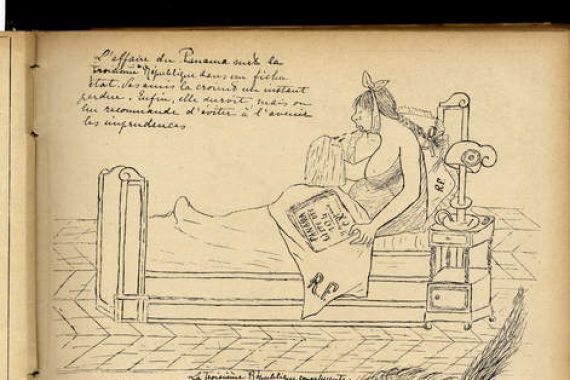 L'affaire du Panama met la
troisième République dans un fichu
état. Ses amis la croient un instant
perdue. Enfin, elle durait, mais on
lui recommande d'éviter à l'avenir
les imprudences
R.F.
PANAMA
R.F.
La Troisième République convalescente.